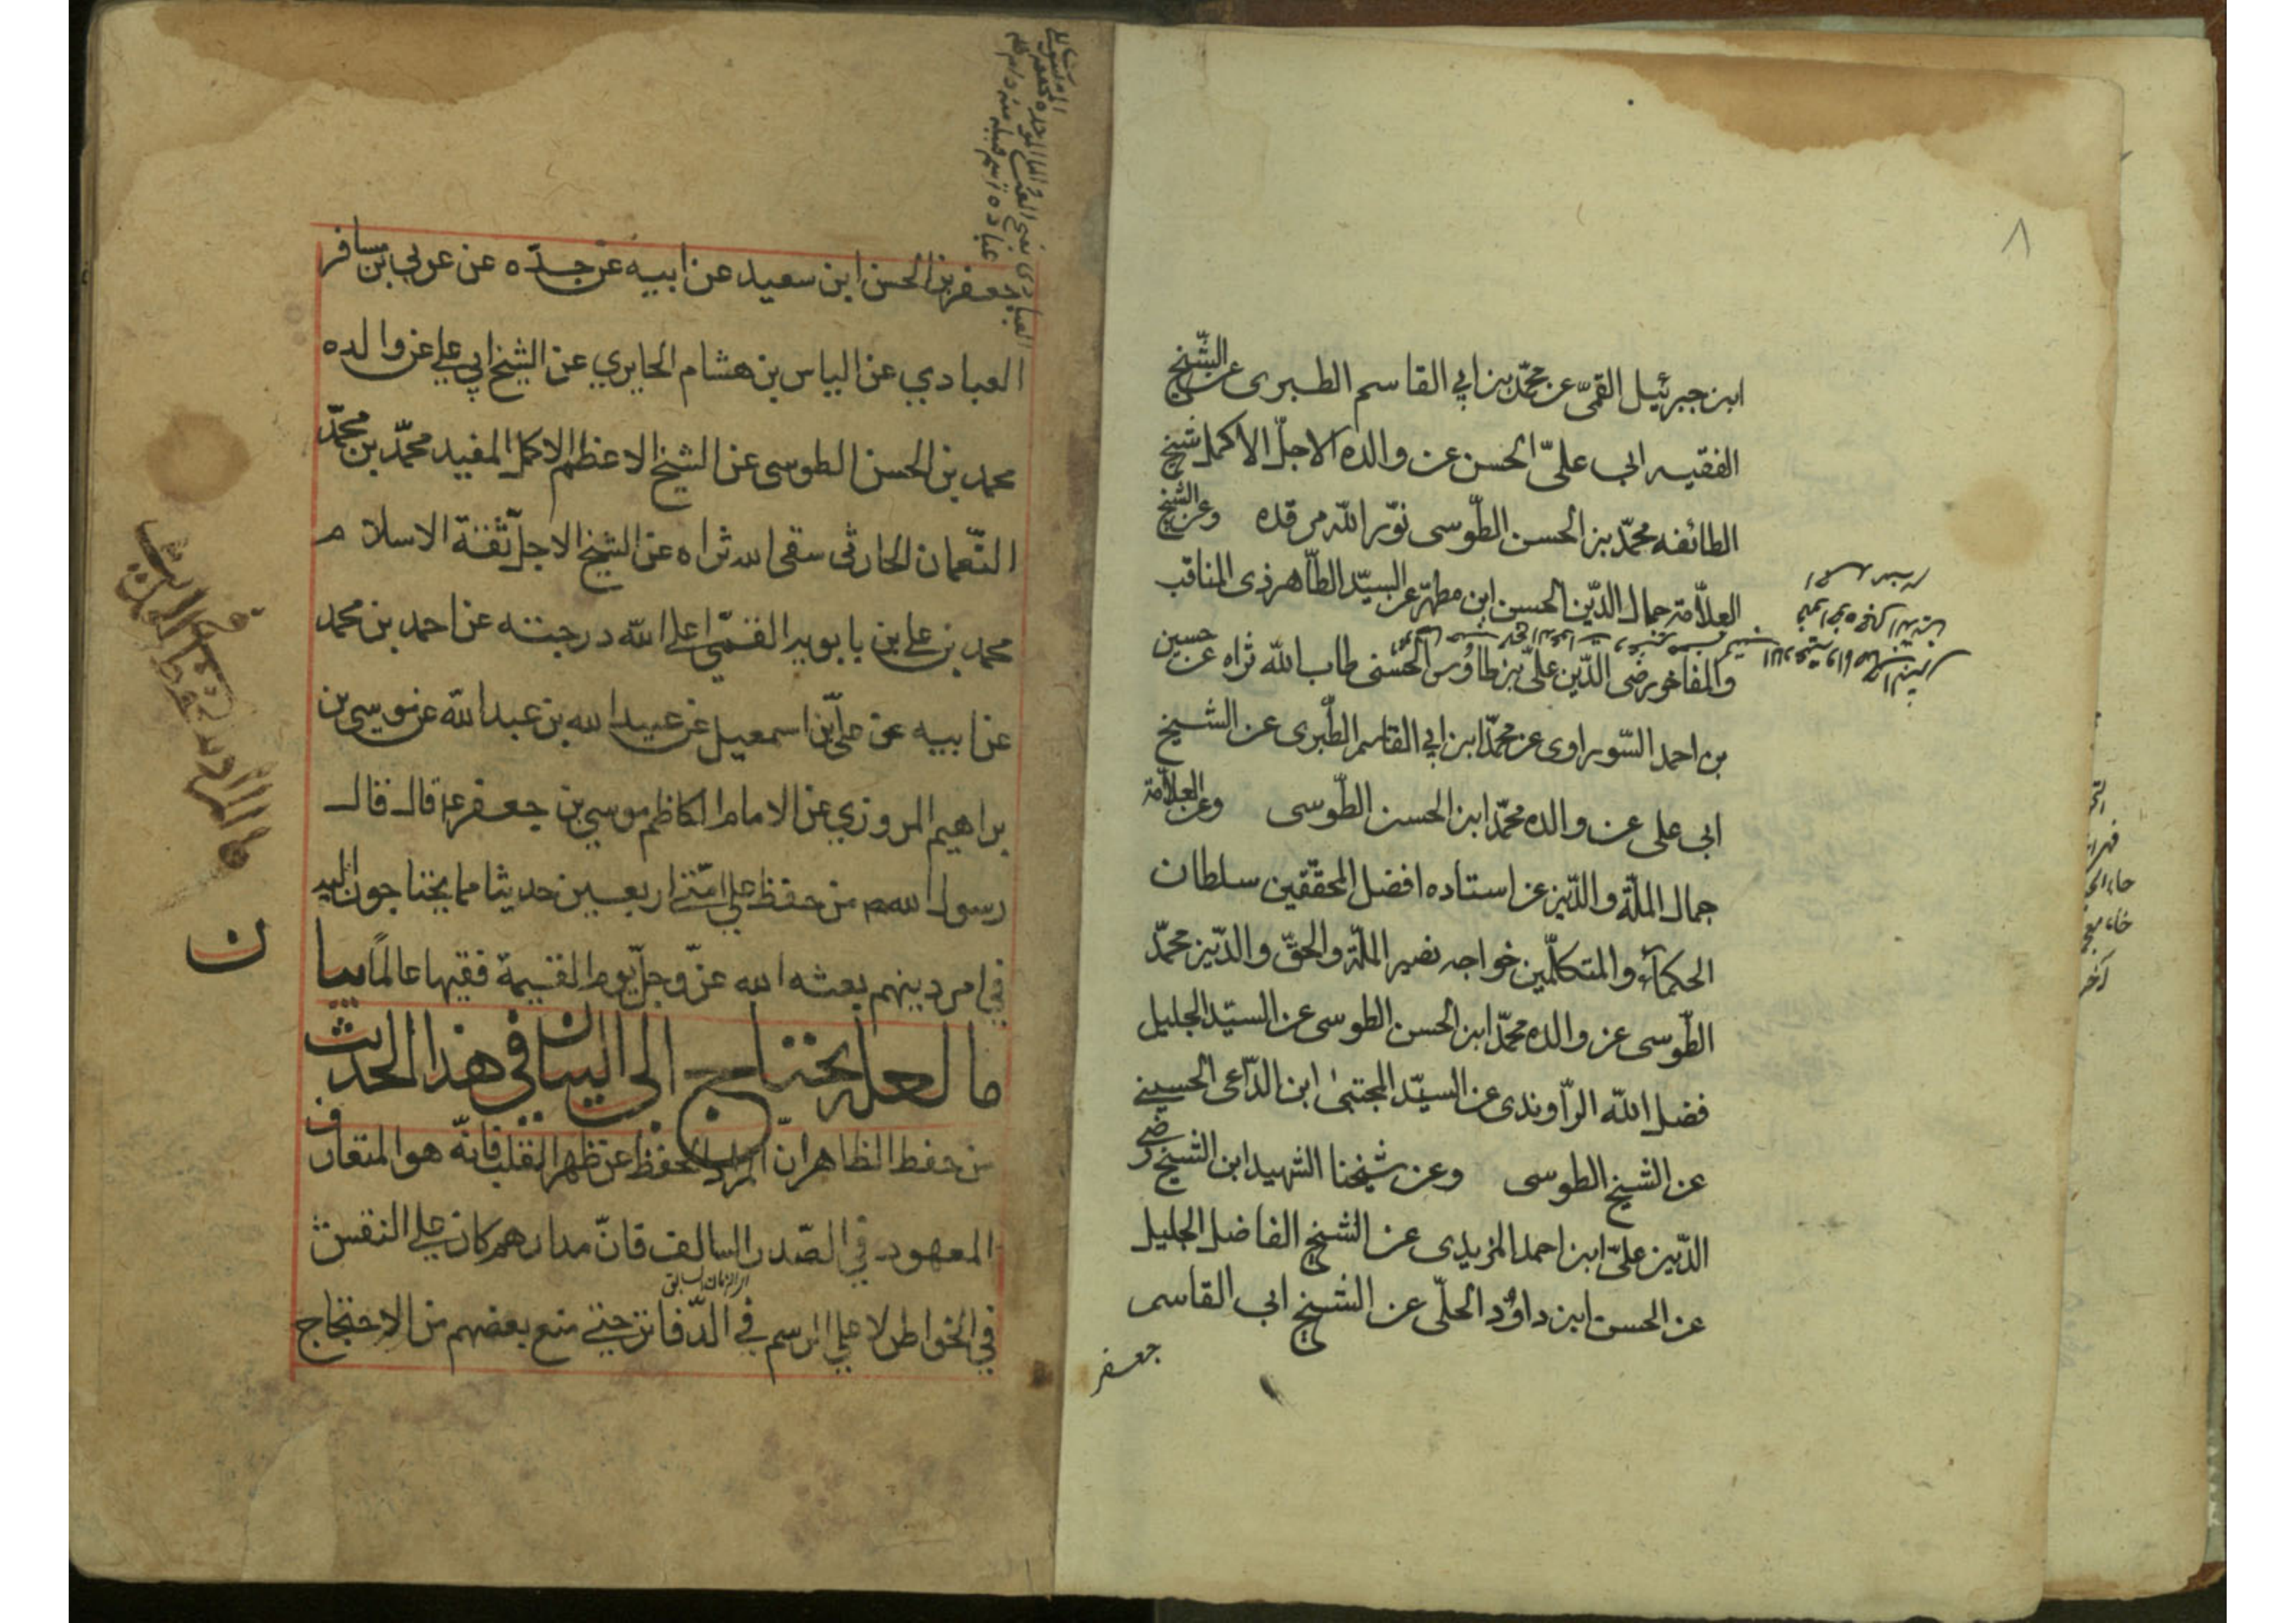 ٨
ابن جبرئيل القمّى عن محمّد بن ابي القاسم الطبرى عن الشّيخ
الفقيه ابى علىّ الحسن عن والده الاجلّ الاكمل شيخ
الطائفه محمّد بن الحسن الطّوسى نوّر اللّه مرقده وعن الشيخ
العلاّمة جمال الدّين الحسن ابن مطهّر عن السيّد الطّاهر ذى المناقب
والمفاخر رضى الدّين علىّ بن طاوُس الحسنى طاب اللّه ثراه عن حسين
بن احمد السّوراوى عن محمّد ابن ابي القاسم الطّبرى عن الشيخ
ابى على عن والده محمّد ابن الحسن الطّوسى وعن العلاّمة
جمال الملّة والدّين عن استاده افضل المحقّقين سلطان
الحكمآء والمتكلّمين خواجه نصير الملّة والحقّ والدّين محمّد
الطّوسى عن والده محمّد ابن الحسن الطوسى عن السيّد الجليل
فضل اللّه الرّاوندى عن السيّد المجتبىٰ ابن الدّاعى الحسينى
عن الشيخ الطوسى وعن شيخنا الشهيد ابن الشيخ رضى
الدّين علىّ ابن احمد المزيدى عن الشيخ الفاضل الجليل
عن الحسن ابن داوُد الحلّى عن الشيخ ابى القاسم
جعفر
جعفر بن الحسن ابن سعيد عن ابيه عن جدّه عن عربي بن مسافر
العبادي عن الياس بن هشام الحايري عن الشيخ ابي علي عن والده
محمد بن الحسن الطوسى عن الشيخ الاعظم الاكمل المفيد محمّد بن محمّد
النّعمان الحارثى سقى الله ثراه عن الشيخ الاجل ثقة الاسلام
محمد بن علي بن بابويه القمّي اعلى اللّه درجته عن احمد بن محمد
عن ابيه عن علي بن اسمعيل عن عبيد الله بن عبد اللّه عن موسي بن
براهيم المروزي عن الامام الكاظم موسي بن جعفر ع قال قال
رسول الله ص من حفظ علي امّتي اربعين حديثا مما يحتاجون اليه
في امر دينهم بعثه الله عزّ وجلّ يوم القيمة فقيها عالماً بيا
ن
ما لعله يحتاج الى البيان في هذا الحديث
من حفظ الظاهر انّ المراد الحفظ عن ظهر القلب فانّه هو المتعارف
المعهود في الصّدر السالف فانّ مدارهم كان علي النقش
اى الزمان السابق
في الخواطر لا علي الرسم في الدّفاتر حتي منع بعضهم من الاحتجاج